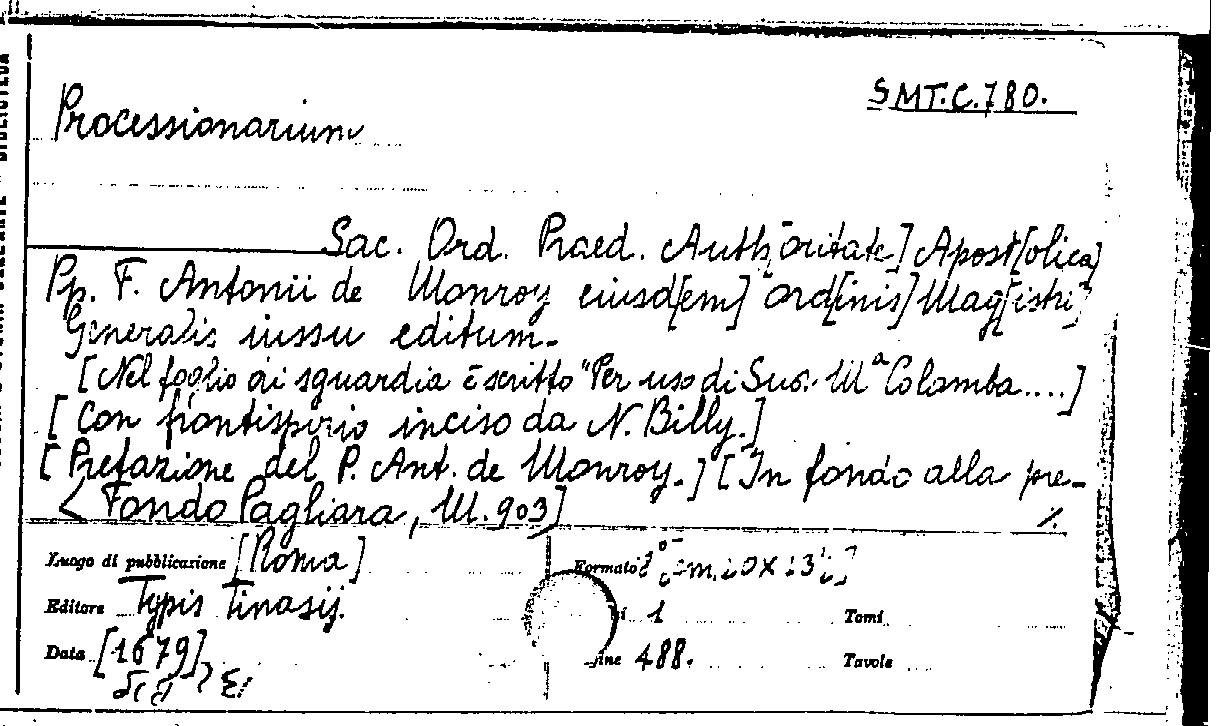 SMT.C.780.
Processionarium
Sac. Ord. Praed. Auth[oritate] Apost[olica]
Pp. F. Antonii de Monroy eiusd[em] ord[inis] Mag[istri]
Generalis iussu editum.
[Nel foglio di sguardia è scritto "Per uso di Suor Mª Colomba....]
[Con frontispizio inciso da N. Billy.]
[Prefazione del P. Ant. de Monroy.] [In fondo alla pre-
< Fondo Pagliara, III. 903] ./.
Luogo di pubblicazione [Roma] Formato 8°
Editore Typis Tinasij. 1 Tomi
Data [1679] 488. Tavole